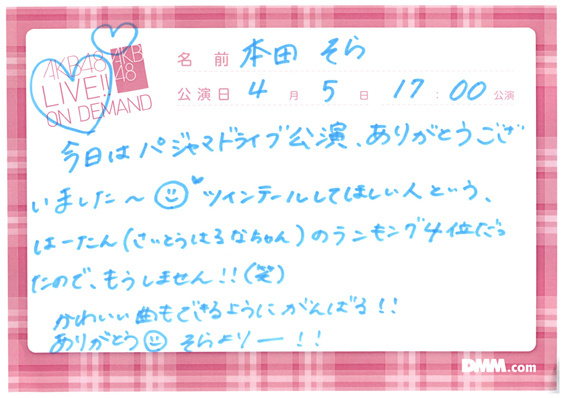 AKB48
LIVE!!
ON DEMAND
AKB
48
名前 本田 そら
公演日 4月5日 17:00公演
今日はパジャマドライブ公演、ありがとうござ
いました〜 ツインテールしてほしい人という、
はーたん(さいとうはるなちゃん)のランキング4位だっ
たので、もうしません!!(笑)
かわいい曲もできるようにがんばる!!
ありがとう そらよりー!!
DMM.com